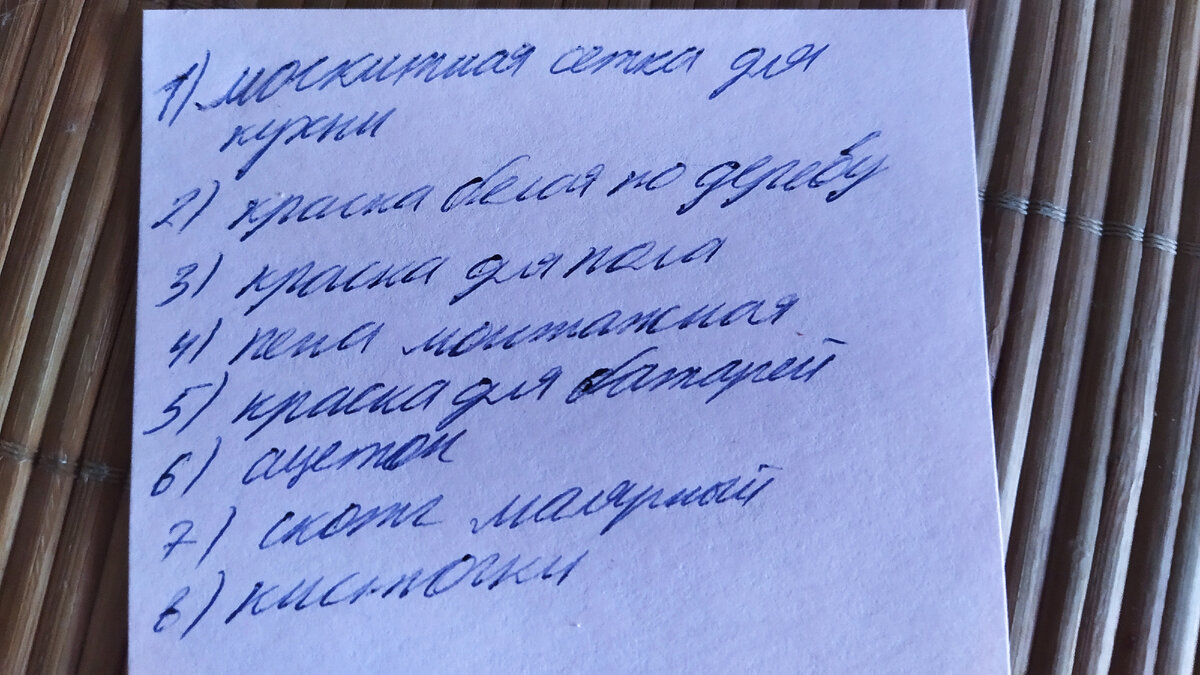 1) москитная сетка для
кухни
2) краска белая по дереву
3) краска для пола
4) пена монтажная
5) краска для батарей
6) ацетон
7) скотч малярный
8) кисточки